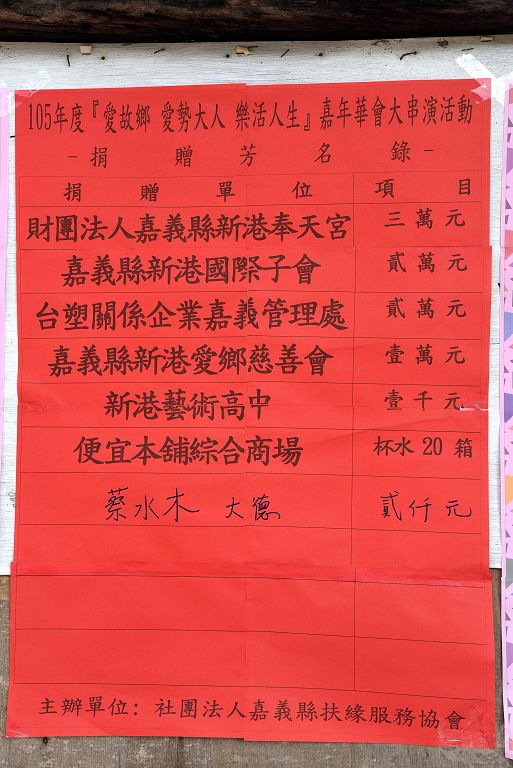 105年度『愛故鄉 愛勢大人 樂活人生』嘉年華會大串演活動
-捐贈芳名錄-
捐贈單位 項目
財團法人嘉義縣新港奉天宮 三萬元
嘉義縣新港國際子會 貳萬元
台塑關係企業嘉義管理處 貳萬元
嘉義縣新港愛鄉慈善會 壹萬元
新港藝術高中 壹千元
便宜本舖綜合商場 杯水20箱
蔡水木 大德 貳仟元
主辦單位：社團法人嘉義縣扶緣服務協會